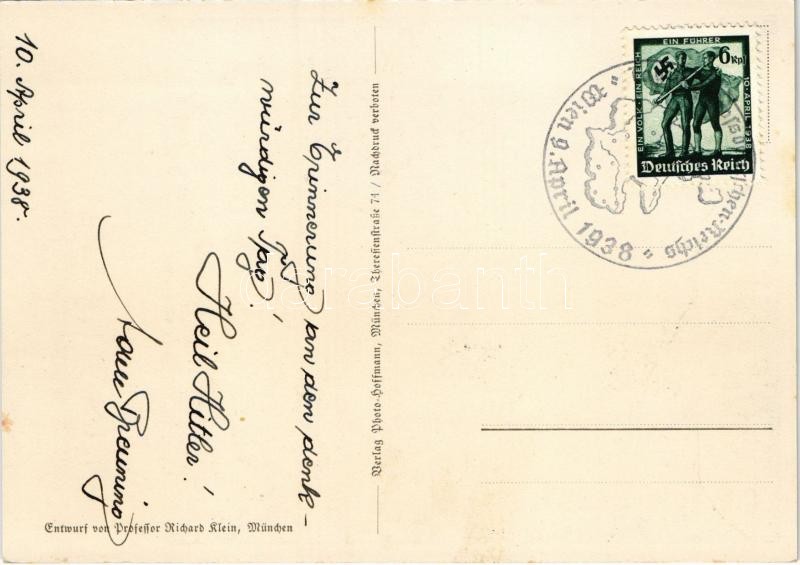 10. April 1938.
Zur Erinnerung an den denk-
würdigen Tag!
Heil Hitler!
Entwurf von Professor Richard Klein, München
Verlag Photo-Hoffmann, München, Theresienstraße 74 / Nachdruck verboten
EIN VOLK · EIN REICH
EIN FÜHRER
10·APRIL 1938
6 Rpf
Deutsches Reich
" Wien 9. April 1938 "
schen-Reichs
darabanth